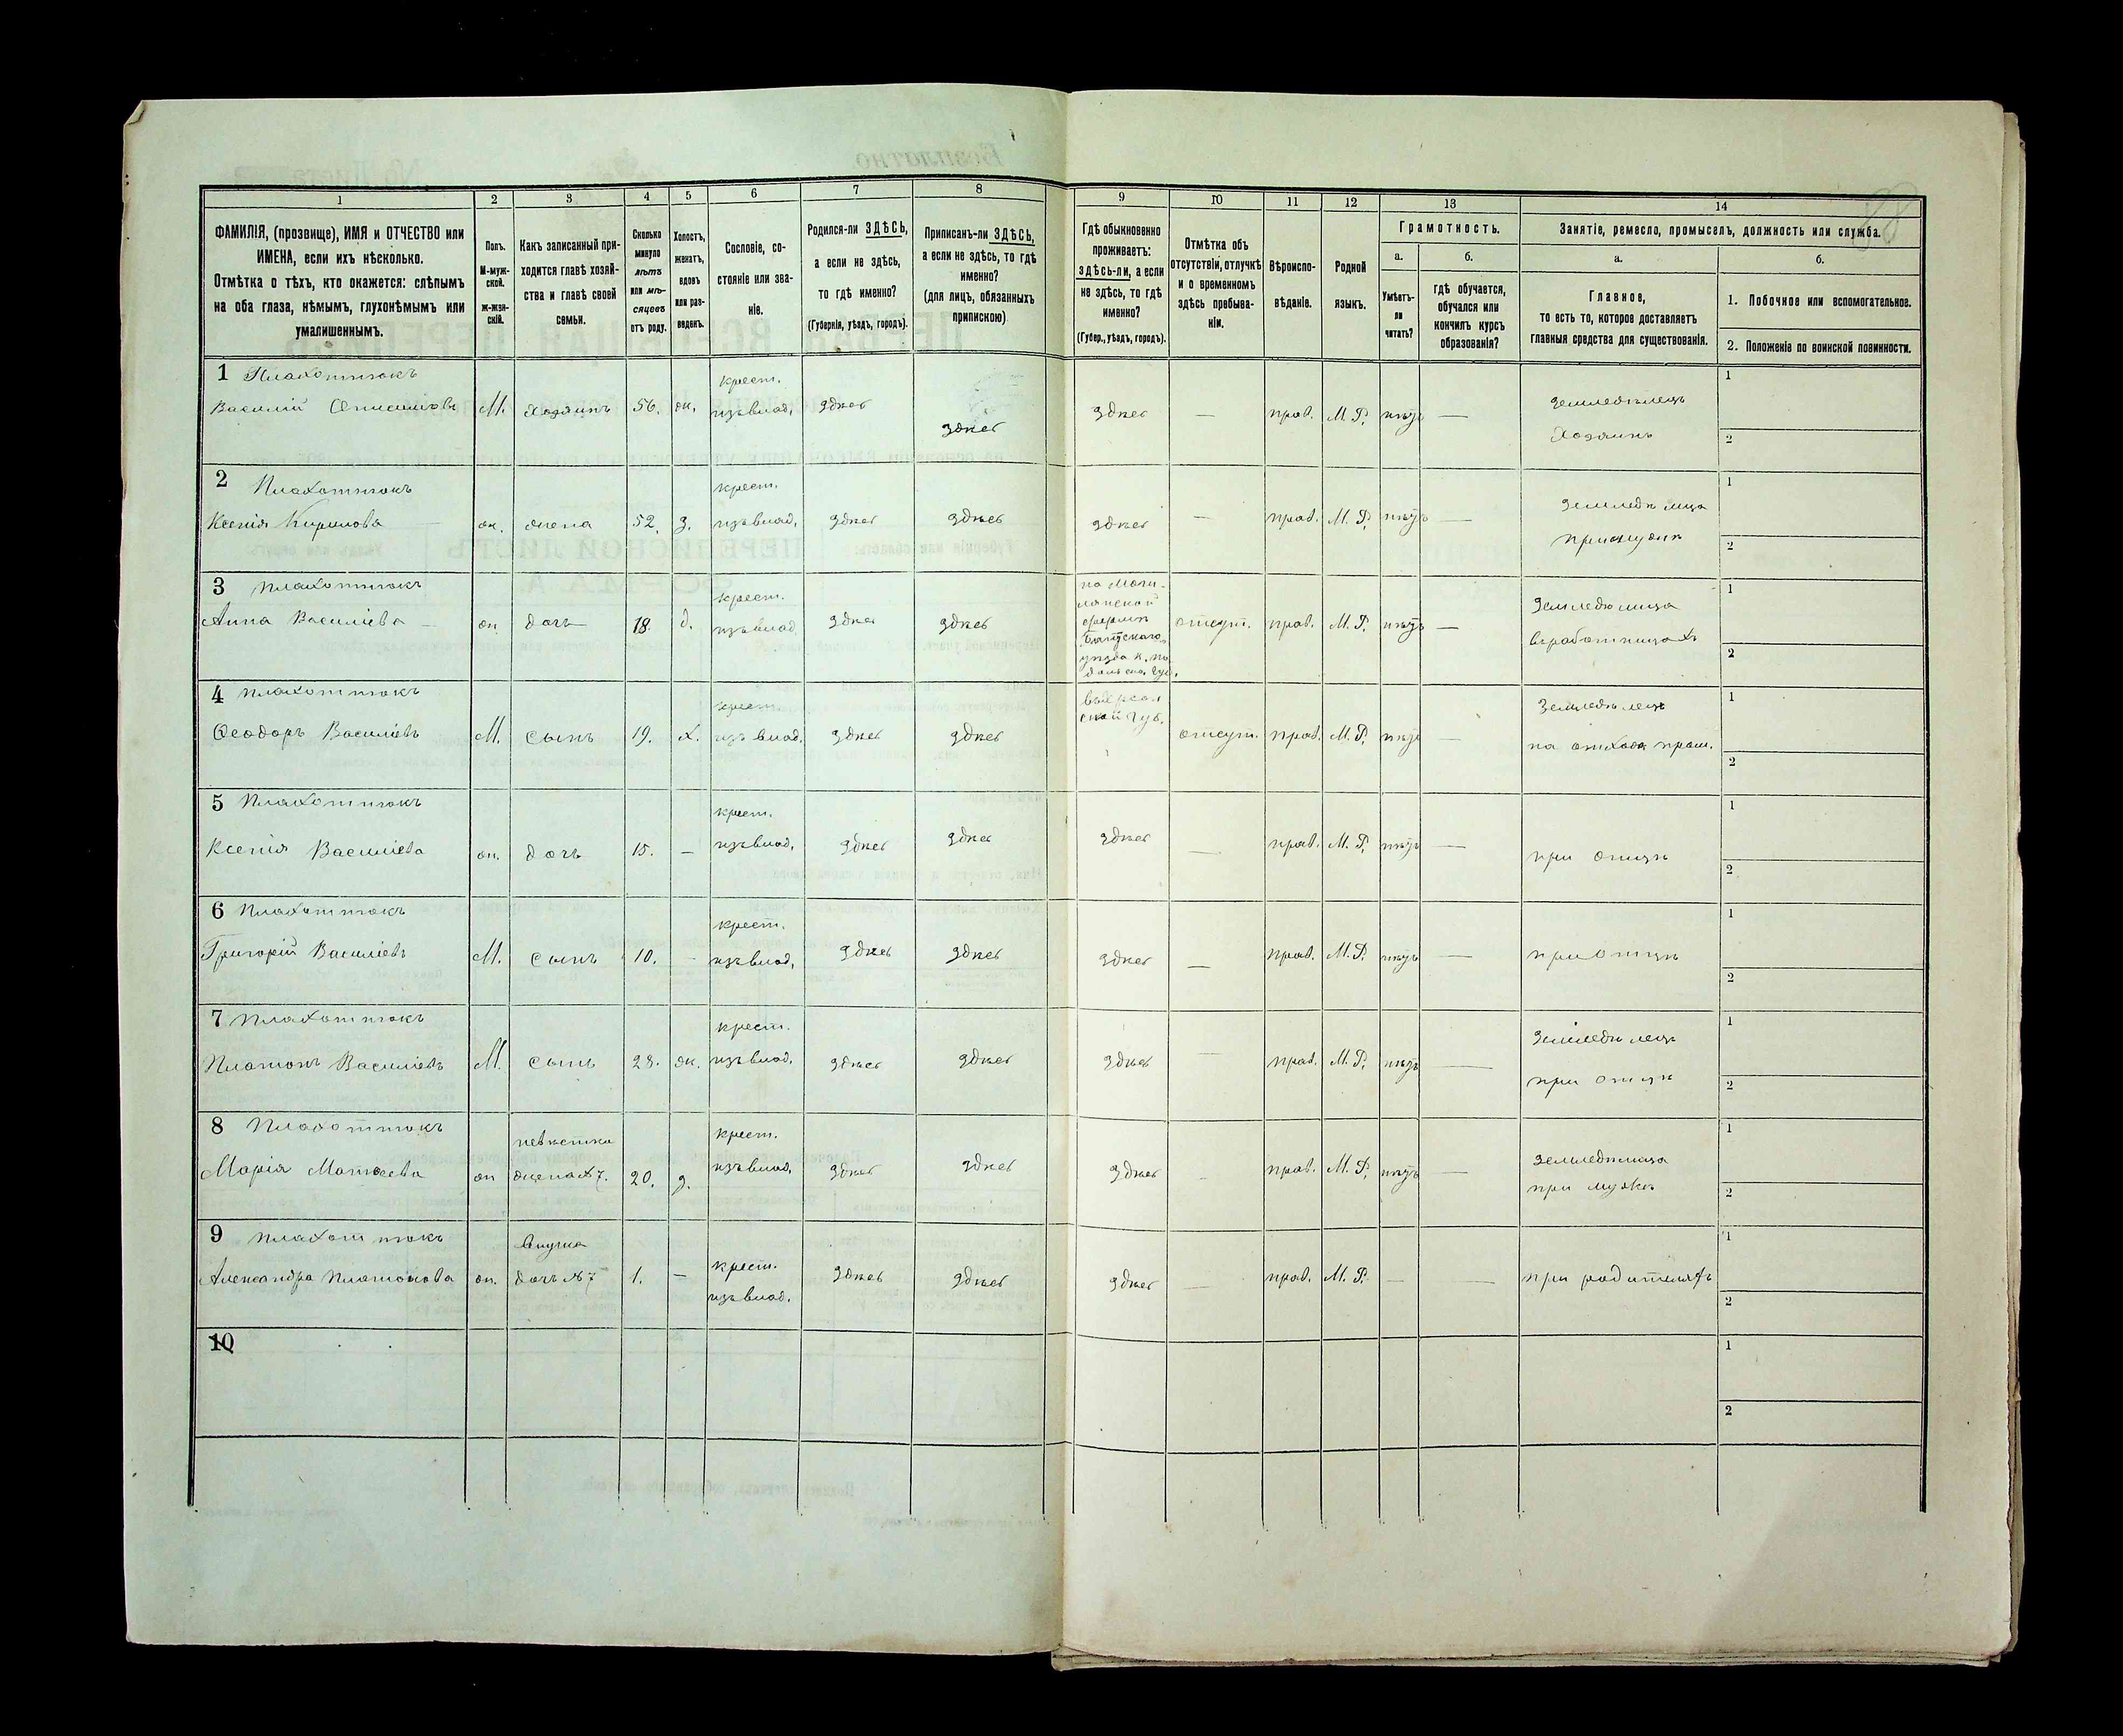 Безплатно
№ Листа
88
1 2 3 4 5 6 7 8 9 10 11 12 13 14
ФАМИЛІЯ, (прозвище), ИМЯ и ОТЧЕСТВО или ИМЕНА, если ихъ нѣсколько.
Отмѣтка о тѣхъ, кто окажется: слѣпымъ на оба глаза, нѣмымъ, глухонѣмымъ или умалишеннымъ.
Полъ.
М-мужской.
ж-женскій.
Какъ записанный приходится главѣ хозяйства и главѣ своей семьи.
Сколько минуло лѣтъ или мѣсяцевъ отъ роду.
Холостъ, женатъ, вдовъ или разведенъ.
Сословіе, состояніе или званіе.
Родился-ли ЗДѢСЬ, а если не здѣсь, то гдѣ именно?
(Губернія, уѣздъ, городъ).
Приписанъ-ли ЗДѢСЬ, а если не здѣсь, то гдѣ именно?
(для лицъ, обязанныхъ припискою)
Гдѣ обыкновенно проживаетъ: здѣсь-ли, а если не здѣсь, то гдѣ именно?
(Губер., уѣздъ, городъ).
Отмѣтка объ отсутствіи, отлучкѣ и о временномъ здѣсь пребываніи.
Вѣроисповѣданіе.
Родной языкъ.
Грамотность.
а.
Умѣетъ-ли читать?
б.
гдѣ обучается, обучался или кончилъ курсъ образованія?
Занятіе, ремесло, промыселъ, должность или служба.
а.
Главное,
то есть то, которое доставляетъ главныя средства для существованія.
б.
1. Побочное или вспомогательное.
2. Положеніе по воинской повинности.
1 Плахоттюкъ
Василій Онисимовъ М. хозяинъ 56. ж. крест. изъ влад. здѣсь здѣсь здѣсь — прав. М. Р. нѣтъ — земледѣлецъ хозяинъ
2 Плахоттюкъ
Ксенія Кирилова ж. жена 52. з. крест. изъ влад. здѣсь здѣсь здѣсь — прав. М. Р. нѣтъ — земледѣлица при мужѣ
3 Плахоттюкъ
Анна Василіева ж. дочь 18. д. крест. изъ влад. здѣсь здѣсь отсут. прав. М. Р. нѣтъ — земледѣлица въ работницахъ
4 Плахоттюкъ
Ѳеодоръ Василіевъ М. сынъ 19. х. крест. изъ влад. здѣсь здѣсь въ Херсонской губ. отсут. прав. М. Р. нѣтъ — земледѣлецъ на отхожѣ пром.
5 Плахоттюкъ
Ксенія Василіева ж. дочь 15. — крест. изъ влад. здѣсь здѣсь здѣсь — прав. М. Р. нѣтъ — при отцѣ
6 Плахоттюкъ
Григорій Василіевъ М. сынъ 10. — крест. изъ влад. здѣсь здѣсь здѣсь — прав. М. Р. нѣтъ — при отцѣ
7 Плахоттюкъ
Платонъ Василіевъ М. сынъ 28. ж. крест. изъ влад. здѣсь здѣсь здѣсь — прав. М. Р. нѣтъ — земледѣлецъ при отцѣ
8 Плахоттюкъ
Марія Матѳеева ж невѣстка жена №7. 20. з. крест. изъ влад. здѣсь здѣсь здѣсь — прав. М. Р. нѣтъ — земледѣлица при мужѣ
9 Плахоттюкъ
Александра Платонова ж. внучка дочь №7 1. — крест. изъ влад. здѣсь здѣсь здѣсь — прав. М. Р. — — при родителяхъ
10